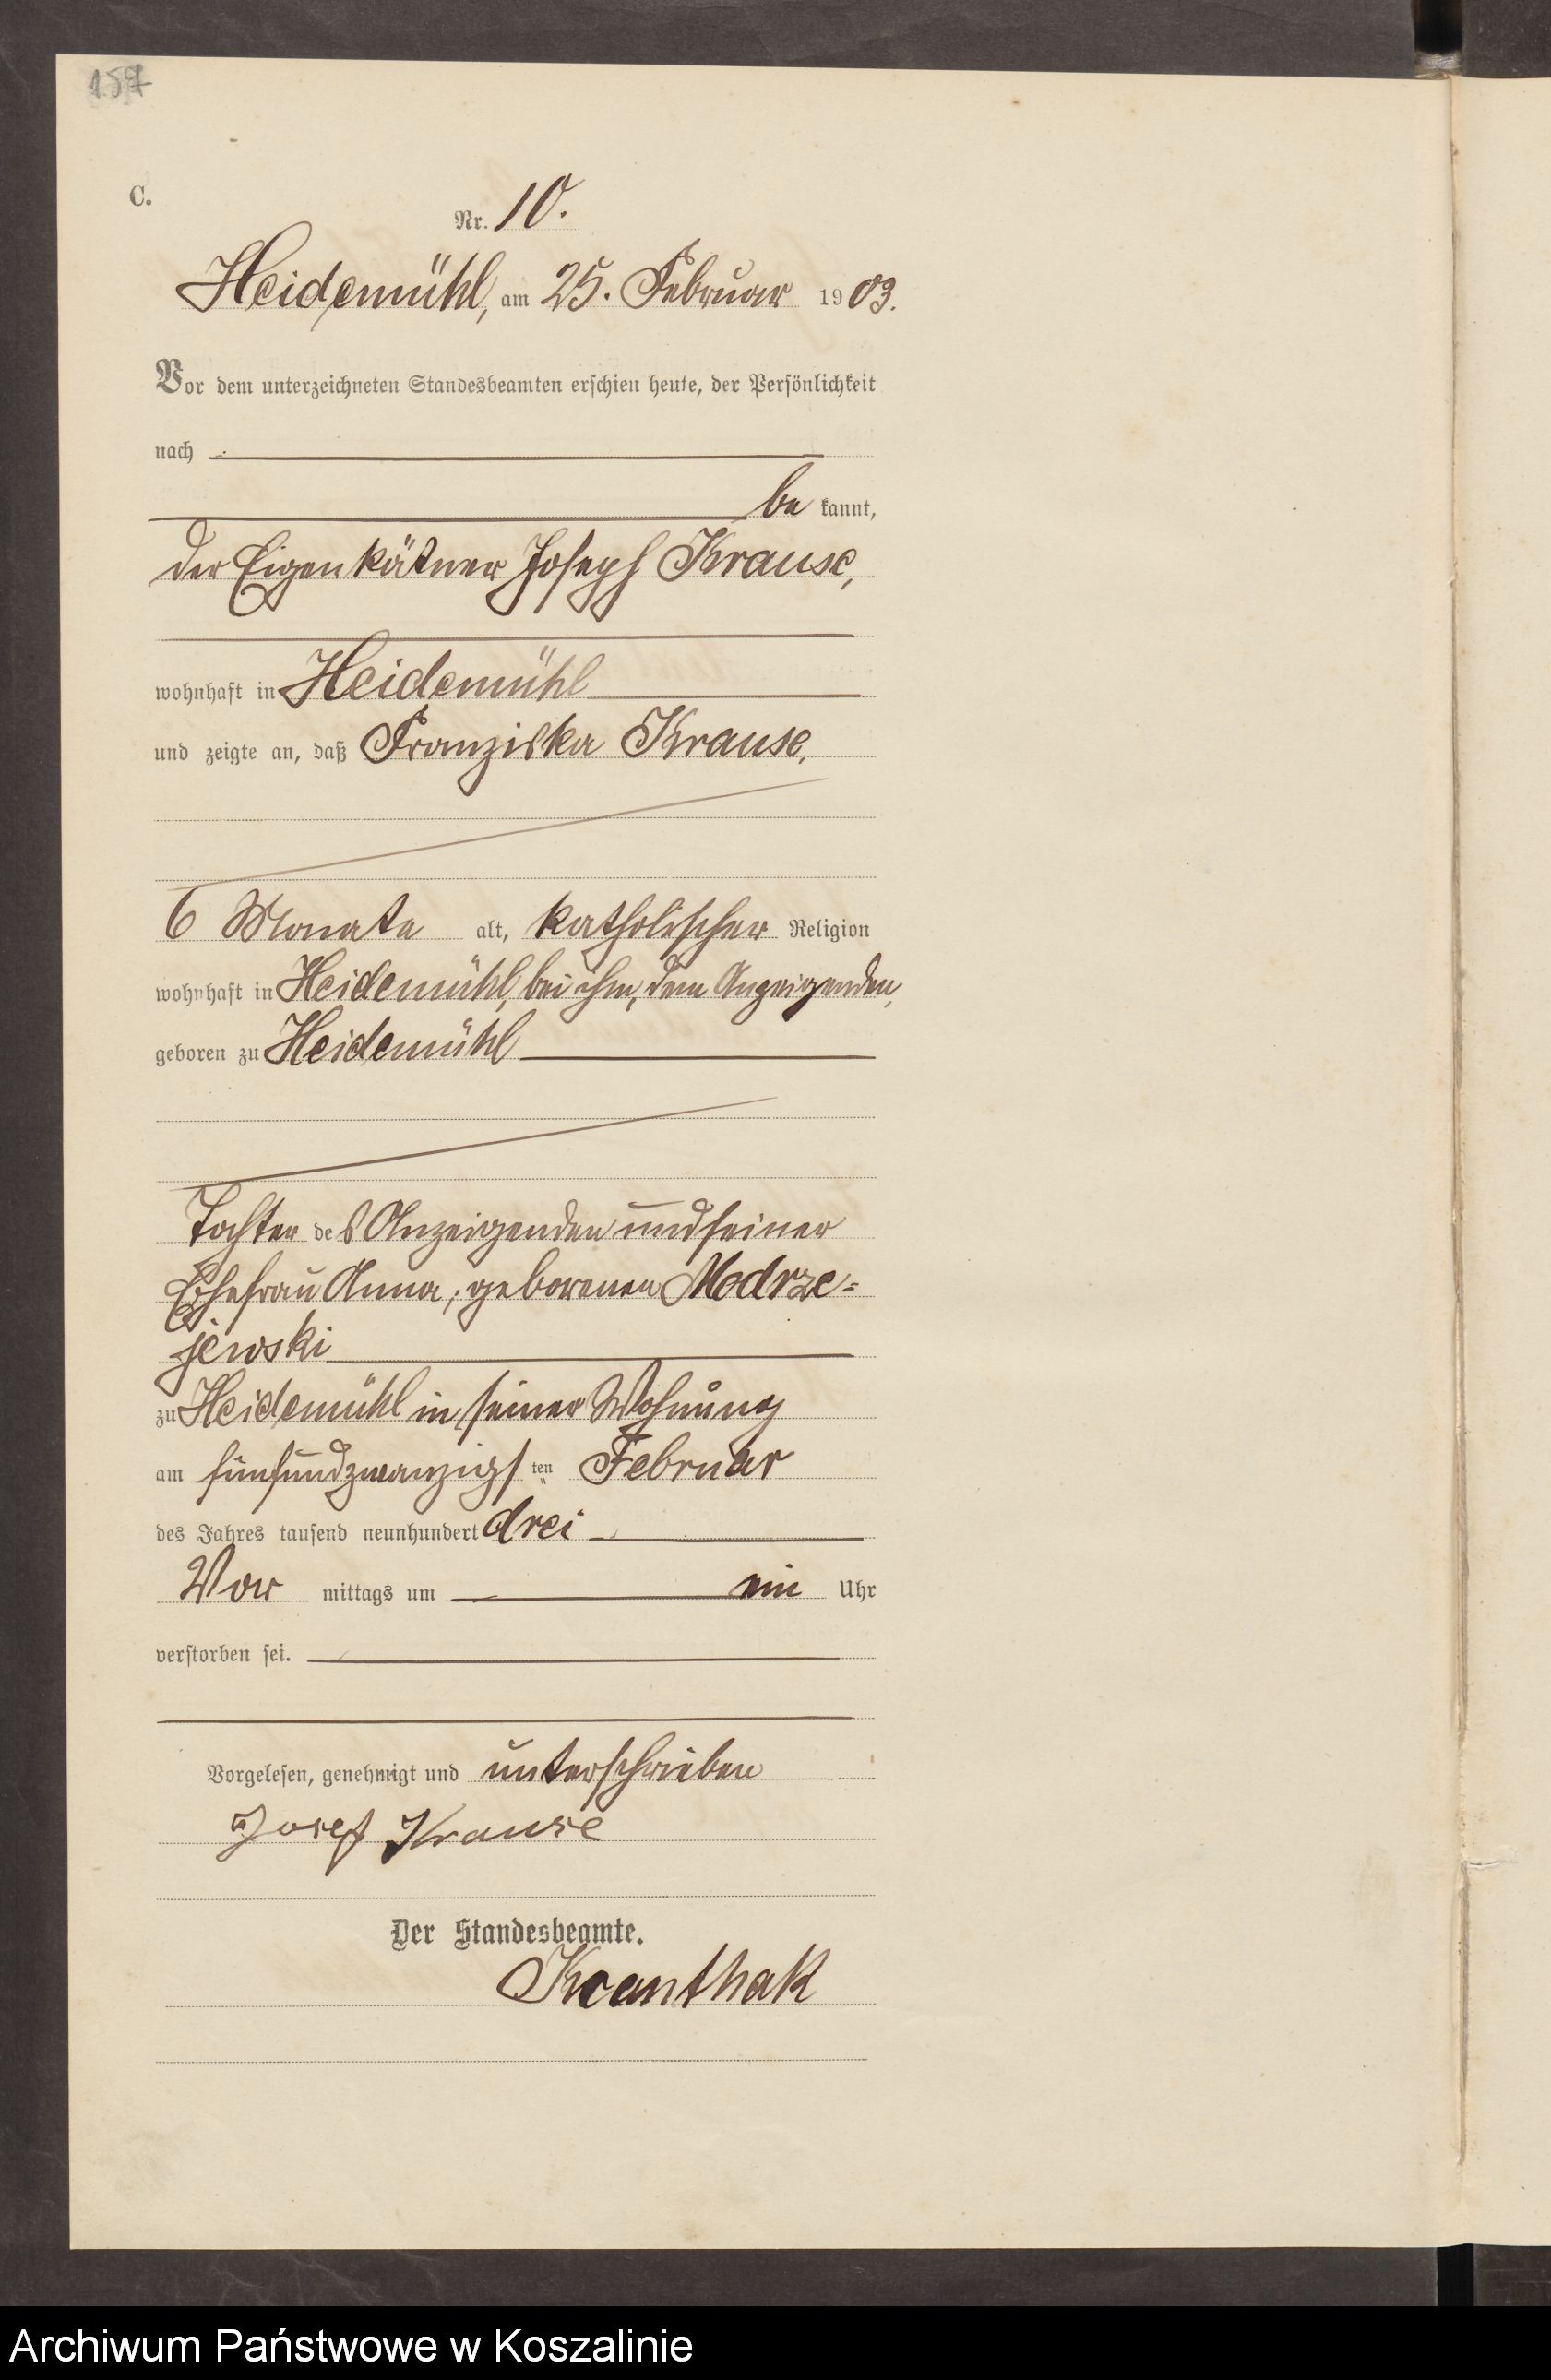 157
C.
Nr. 10.
Heidemühl, am 25. Februar 1903.
Vor dem unterzeichneten Standesbeamten erschien heute, der Persönlichkeit
nach
be kannt,
der Eigenkätner Joseph Krause,
wohnhaft in Heidemühl
und zeigte an, daß Franziska Krause,
6 Monate alt, katholischer Religion
wohnhaft in Heidemühl, bei ihm, dem Anzeigenden,
geboren zu Heidemühl
Tochter des Anzeigenden und seiner
Ehefrau Anna, geborenen Modrze=
jewski
zu Heidemühl in seiner Wohnung
am fünfundzwanzigsten Februar
des Jahres tausend neunhundert drei
Vor mittags um ein Uhr
verstorben sei.
Vorgelesen, genehmigt und unterschrieben
Josef Krause
Der Standesbeamte.
Kranthak
Archiwum Państwowe w Koszalinie